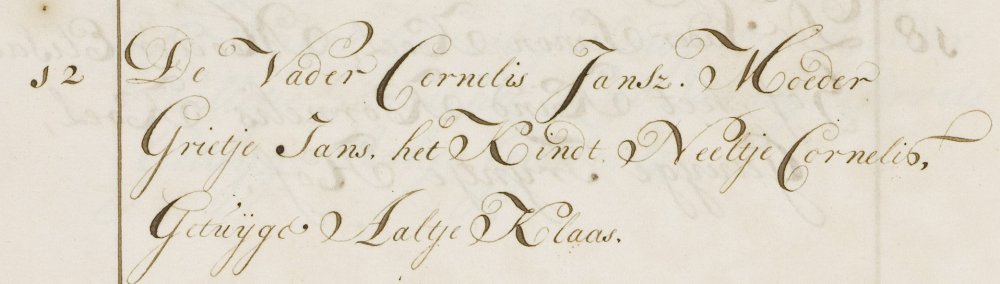 12 De Vader Cornelis Jansz. Moeder
Grietje Jans, het Kindt Neeltje Cornelis,
Getuijge Aaltje Klaas.